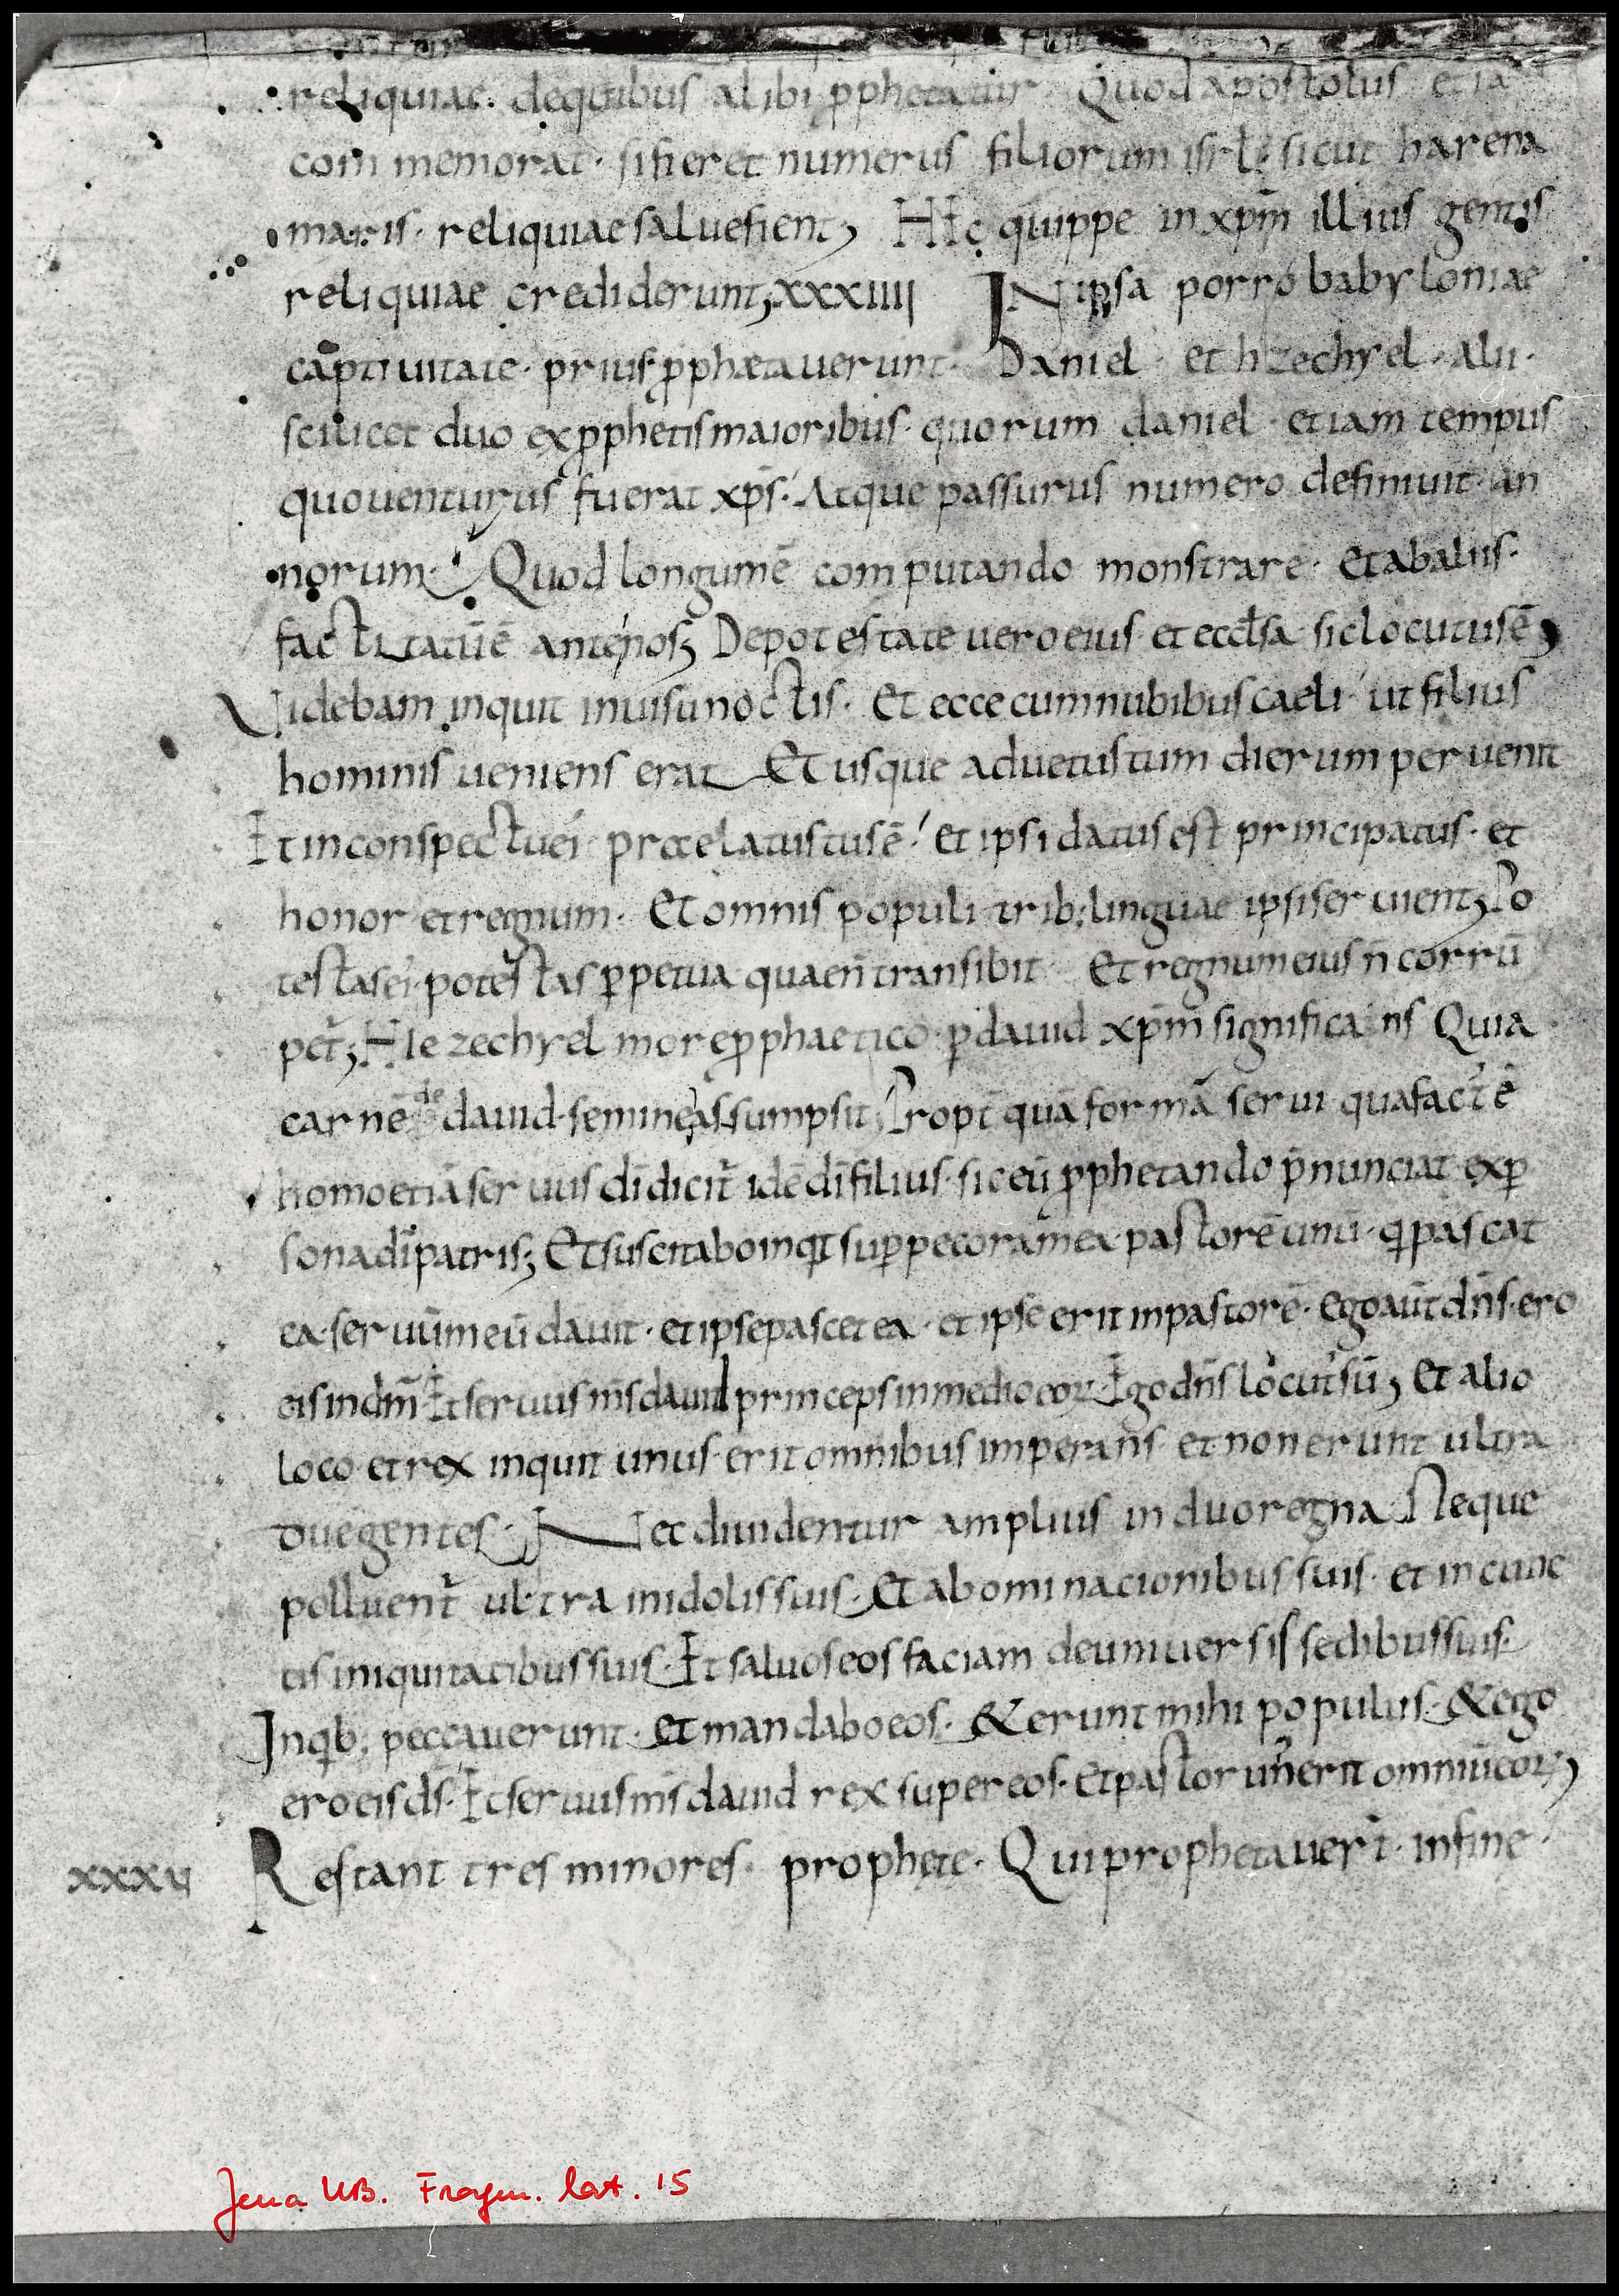 reliquiae. dequibus alibi ꝓphetauit. Quod apostolus etiā
com memorat · sifieret numerus filiorum isrl̄ sicut harena
maris · reliquiae saluefient; Hic quippe in xpm̄ illius gentis
reliquiae crediderunt; xxxiiii IN ipsa porro babyloniae
captiuitate · prius ꝓphætauerunt · Daniel · et hzechyel · alii ·
scilicet duo exꝓphetis maioribus · quorum daniel · etiam tempus
quouenturus fuerat xp̄s · Atque passurus numero definiuit · an
norum · Quod longumē computando monstrare · Et abaliis ·
factitatūē antenos; Depotestate uero eius · et eccl̄sa · siclocutusē;
Videbam inquit inuisu noctis · Et ecce cumnubibus caeli · ut filius
hominis ueniens erat Et usque aduetustum dierum peruenit
Et inconspectu ei · prælatustusē · et ipsi datus est principatus · et
honor · et regnum · Et omnis populi · trib; linguae ipsiseruient; Po
testasei · potestas ꝑpetua quaen̄ transibit · Et regnum eius n̄ corrū
pet̄; Hiezechyel more ꝓphaetico · ꝑdauid xpm̄ significans Quia
carnē de dauid · semine assumpsit; Propt̄ quā formā serui qua fact̄ ē
homo etiā seruus dī dicit̄ idē dī filius · sic eū ꝓphetando p̄nunciat exꝑ
sona dī patris; Et suscitabo inqt̄ suꝑ pecora mea · pastorē unū · qi pascat
ea · seruūmeū dauit · et ipsepascet ea · et ipse erit inpastorē · Ego aūt dn̄s · ero
eis indm̄ Et seruus m̄s dauid princeps inmedio eoꝝ Ego dn̄s locut sū; Et alio
loco · et rex inquit unus · erit omnibus imperans · et non erunt ultra
duegentes · Nec diuidentur amplius in duo regna · Neque
polluent̄ ultra inidolis suis · Et abominacionibus suis · et in cunc
tis iniquitatibus suis · Et saluos eos faciam deuniuersis sedibussuis ·
Inqib; peccauerunt · et mandaboeos · & erunt mihi populus · & ego
ero eis ds̄ · Et seruus m̄s dauid rex super eos · Et pastor un̄ erit omniū eoꝝ;
xxxv Restant tres minores · prophete · Qui prophetauer̄t · infine ·
Jena UB. Fragm. lat. 15